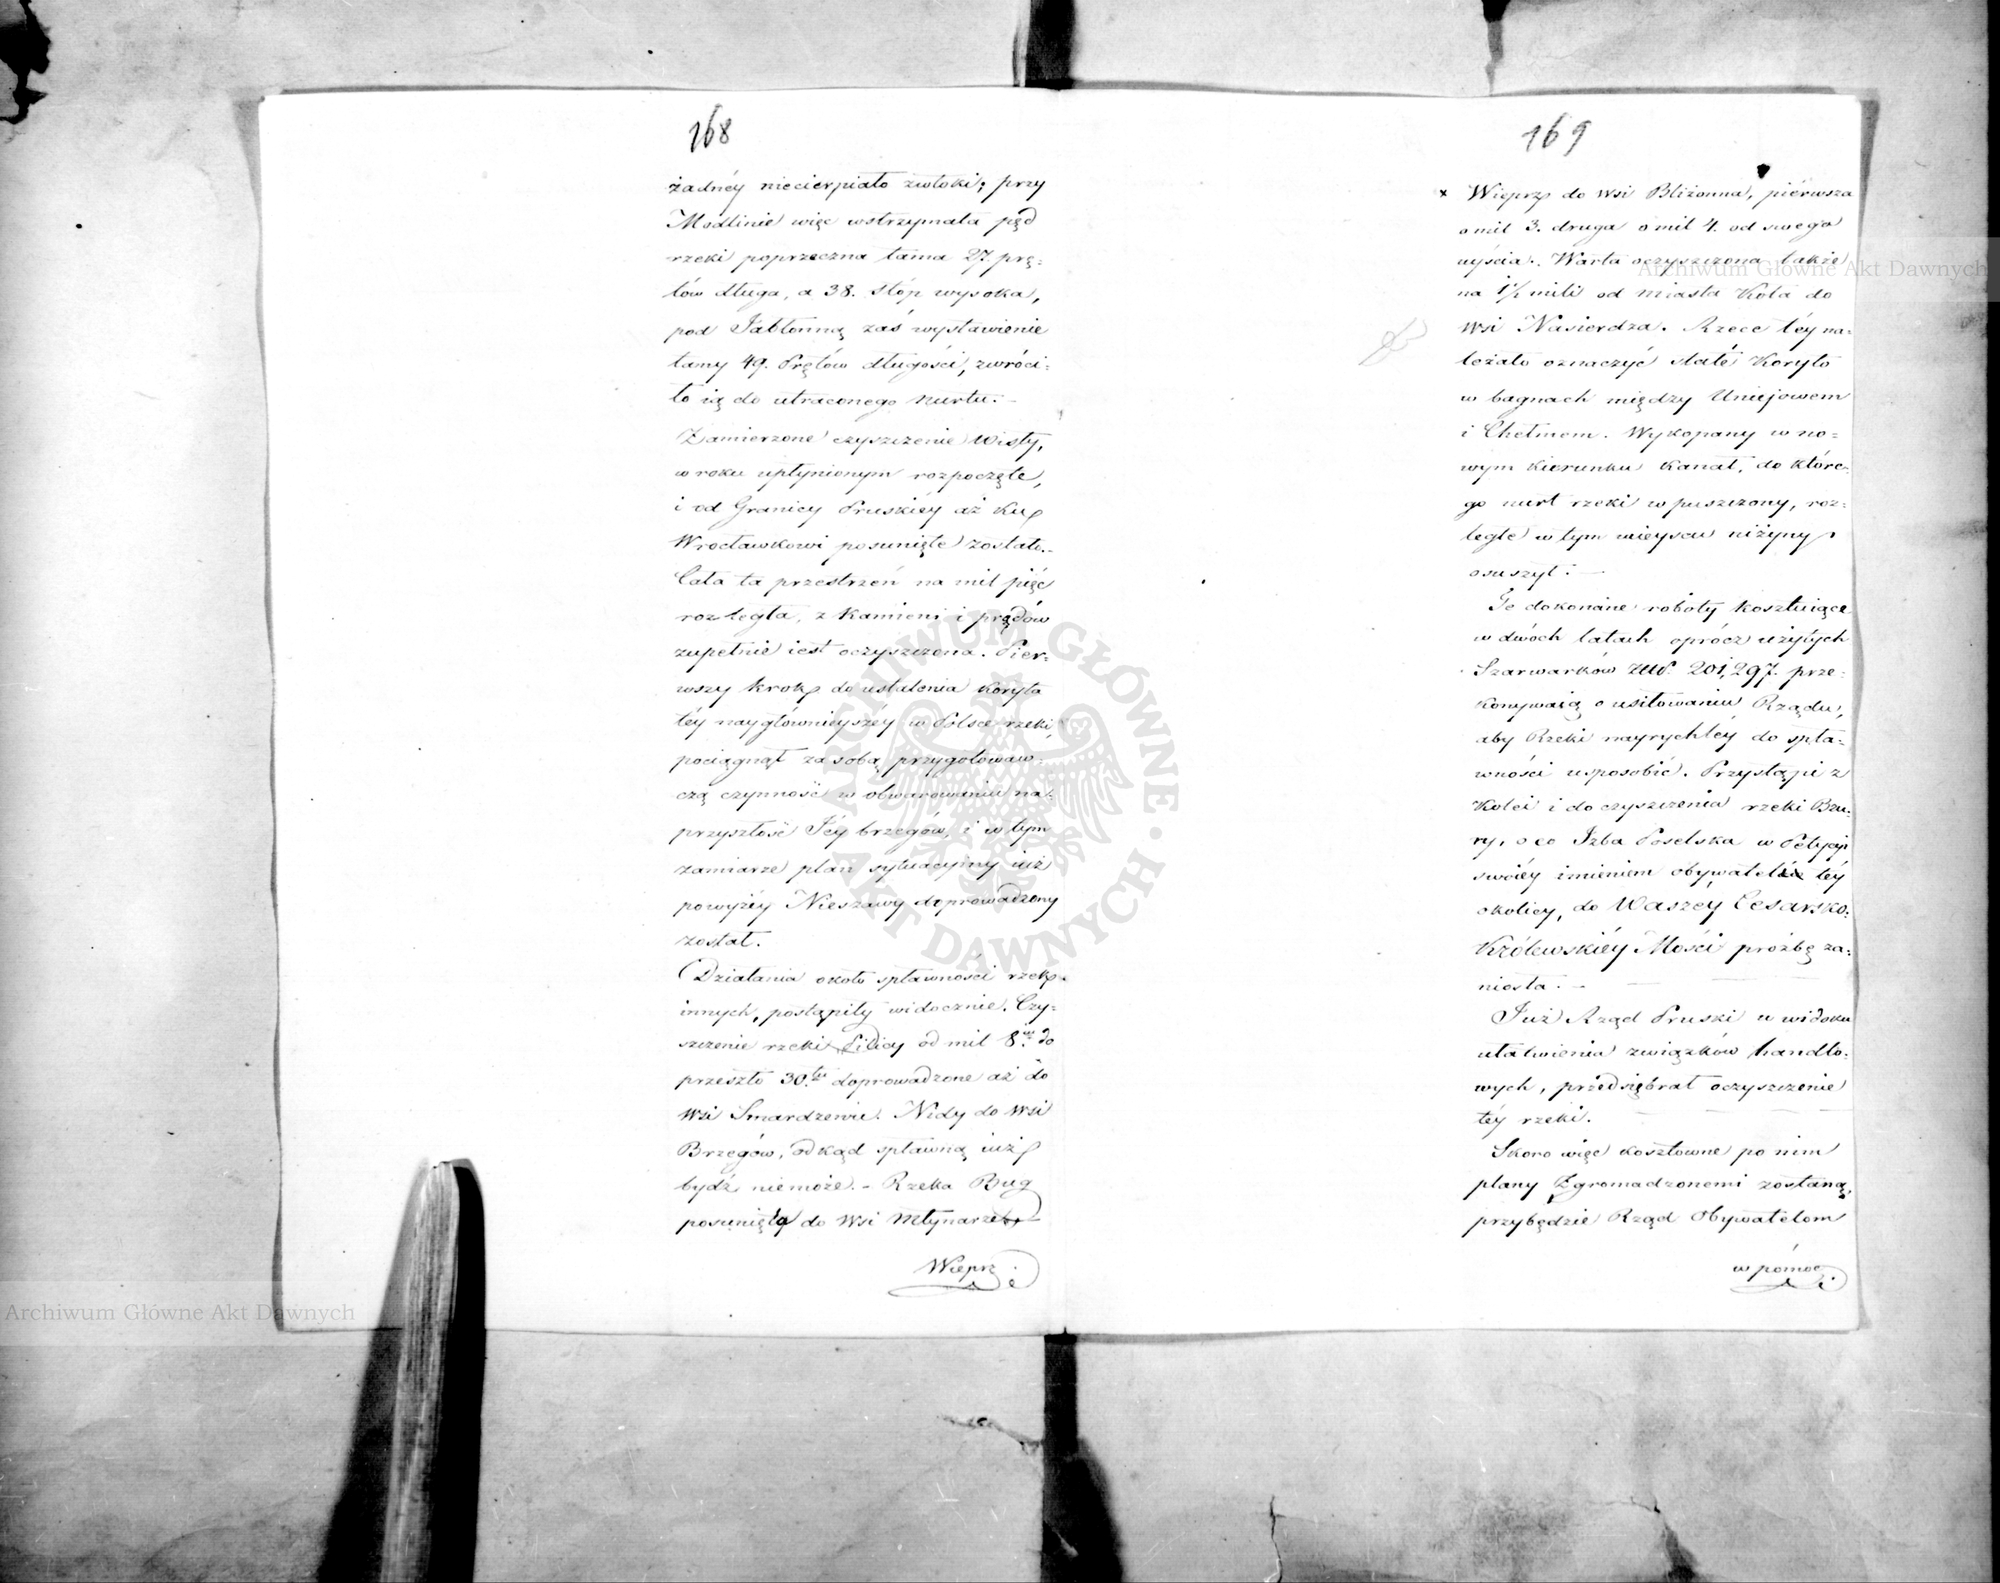 168
żadnéy niecierpiało zwłoki; przy
Modlinie więc wstrzymała pęd
rzeki poprzeczna tama 27. prę=
tów długa, a 38. stóp wysoka,
pod Jabłonną zaś wystawienie
tamy 49. Prętów długości, zwróci=
ło ią do utraconego nurtu. –
Zamierzone czyszczenie Wisły,
w roku upłynionym rozpoczęte,
i od Granicy Pruskiéy aż ku
Wrocławkowi posunięte zostało. –
Cała ta przestrzeń na mil pięć
rozległa, z kamieni i prądów
zupełnie iest oczyszczona. Pier=
wszy krok do ustalenia koryta
téy naygłównieyszéy w Polsce rzeki,
pociągnął za sobą przygotowaw=
czą czynność w obwarowaniu na=
przyszłość Jéy brzegów, i w tym
zamiarze plan sytuacyiny iuż
powyżéy Nieszawy doprowadzony
został.
Działania około spławności rzek
innych, postąpiły widocznie. Czy=
szczenie rzeki Pilicy od mil 8. do
przeszło 30.tu doprowadzone aż do
wsi Smardzewic. Nidy do wsi
Brzegów, odkąd spławną iuż
bydź niemoże. – Rzeka Bug
posunięta do wsi Młynarze
Wieprz
169
x Wieprz do wsi Bliżonna, piérwsza
o mil 3. druga o mil 4. od swego
uyścia. Warta oczyszczona także
na 1½ mili od miasta Koła do
wsi Nasierdza. Rzece téy na=
leżało oznaczyć stałé Koryto
w bagnach między Uniejowem
i Chełmem. Wykopany w no=
wym kierunku kanał, do które=
go nurt rzeki wpuszczony, roz=
ległe w tym mieyscu niżyny
osuszył. –
Te dokonane roboty kosztuiące
w dwóch latach oprócz użytych
Szarwarków Złłp. 201,297. prze=
konywaią o usiłowaniu Rządu,
aby Rzeki nayrychléy do spła=
wności usposobić. Przystąpi z
kolei i do czyszczenia rzeki Bzu=
ry, o co Izba Poselska w Petycyi
swoiéy imieniem obywateli téy
okolicy, do Waszéy Cesarsko=
Królewskiéy Mości prożbę za=
niosła. –
Już Rząd Pruski w widoku
ułatwienia związków handlo=
wych, przedsiębrał oczyszczenie
téy rzeki.
Skoro więc kosztowne po nim
plany Zgromadzonemi zostaną,
przybędzie Rząd Obywatelom
w pómoc
Archiwum Główne Akt Dawnych
Archiwum Główne Akt Dawnych
ARCHIWUM GŁÓWNE AKT DAWNYCH